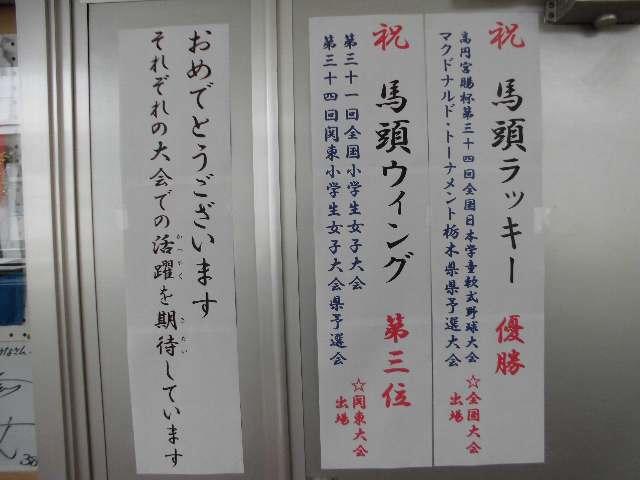 祝 馬頭ラッキー 優勝
高円宮賜杯第三十四回全国日本学童軟式野球大会
マクドナルド・トーナメント栃木県県予選大会
☆全国大会
出場
祝 馬頭ウィング 第三位
第三十一回全国小学生女子大会
第三十四回関東小学生女子大会県予選会
☆関東大会
出場
おめでとうございます
それぞれの大会での活躍を期待しています
かつやく
きたい